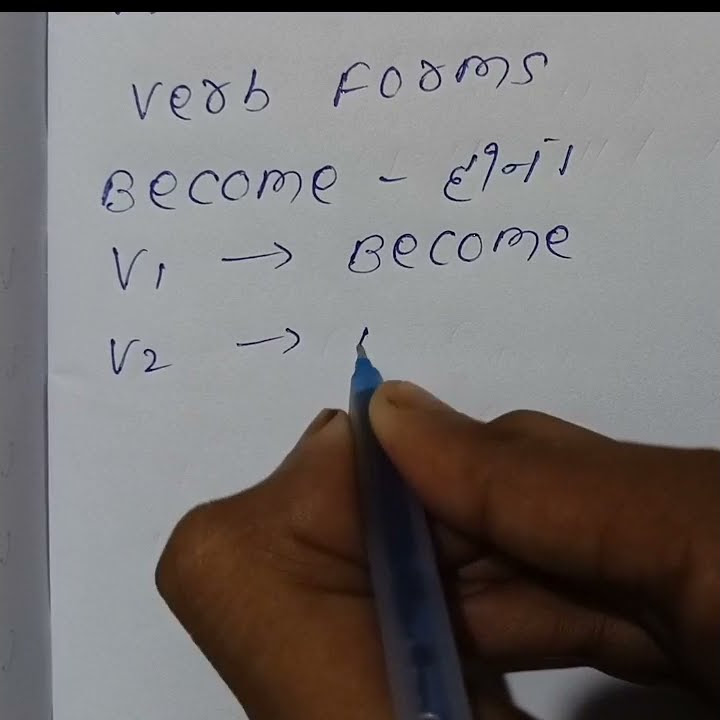 Verb Forms
Become - होना
V1 → Become
V2 →